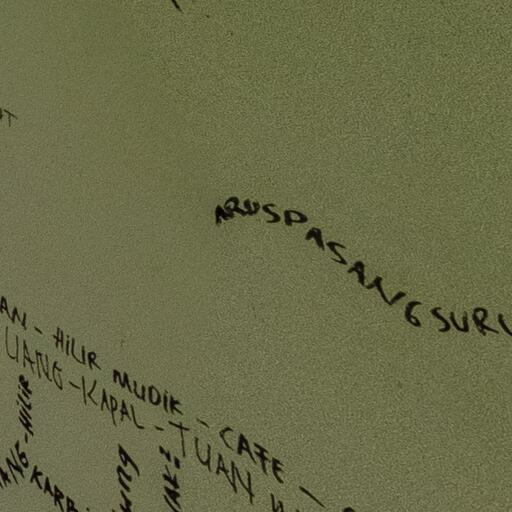 ARUSPASANGSURU
AN - HILIR MUDIK - CAFE -
UANG - KAPAL - TUAN
ANG - HILIR
KARB
ung